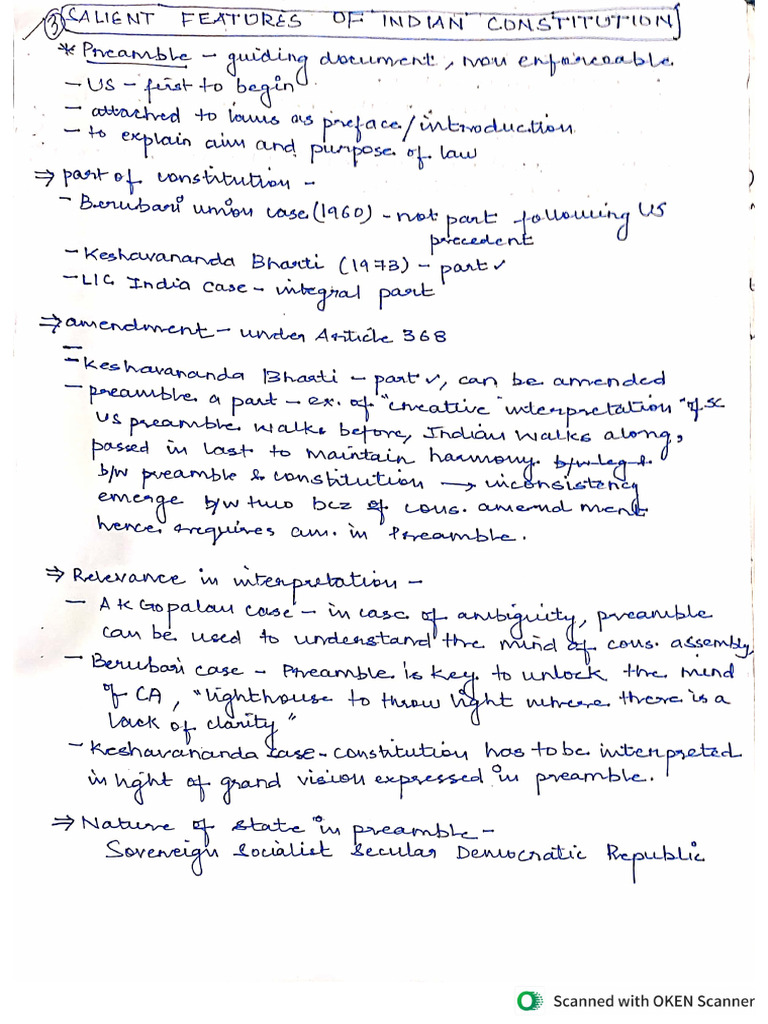 ③ SALIENT FEATURES OF INDIAN CONSTITUTION
* Preamble - guiding document, non enforceable.
- US - first to begin
- attached to laws as preface/introduction
- to explain aim and purpose of law
⇒ part of constitution -
- Berubari union case (1960) - not part following US
precedent
- Keshavananda Bharti (1973) - part ✓
- LIC India Case - integral part
⇒ amendment - under Article 368
- Keshavananda Bharti - part ✓, can be amended
- preamble a part - ex. of "creative interpretation" of SC
US preamble walks before, Indian walks along,
passed in last to maintain harmony b/w leg &
b/w preamble & constitution → inconsistency
emerge b/w two bcz of cons. amendment
hence requires am. in Preamble.
⇒ Relevance in interpretation -
- A K Gopalan case - in case of ambiguity, preamble
can be used to understand the mind of cons. assembly
- Berubari case - Preamble is key to unlock the mind
of CA, "lighthouse to throw light where there is a
lack of clarity"
- Keshavananda case - constitution has to be interpreted
in light of grand vision expressed in preamble.
⇒ Nature of state in preamble -
Sovereign Socialist Secular Democratic Republic
Scanned with OKEN Scanner